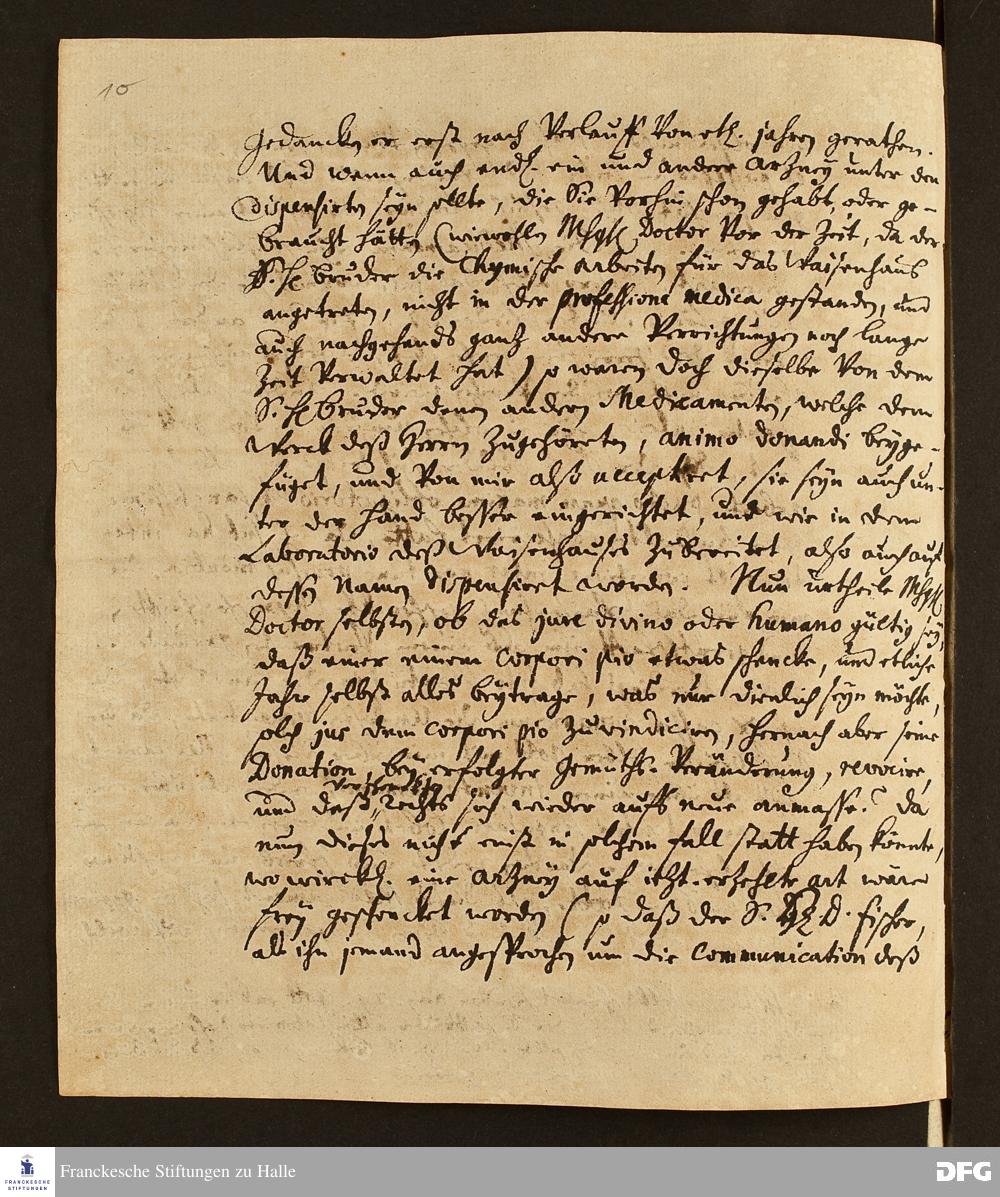 10
gedancken er erst nach Verlauff von etl. jahren gerathen.
Und wenn auch endl. ein und andere Artzney unter den
dispensirten seyn sollte, die Sie vorhin schon gehabt, oder ge-
braucht hätten (wiewohlen MhgH Doctor vor der Zeit, da der
S. H bruder die Chymische arbeiten für das Waisenhaus
angetreten, nicht in der professione medica gestanden, und
auch nachgehends gantz andere Verrichtungen noch lange
Zeit verwaltet hat) so waren doch dieselbe von dem
S. H bruder denen andern Medicamenten, welche dem
Werck deß Herrn zugehöreten, animo donandi beyge-
füget, und von mir alß acceptiret, sie seyn auch un-
ter der hand besser eingerichtet, und wie in dem
Laboratorio deß Waisenhauses zubereitet, also auch auf
dessen Namen dispensiret worden. Nun urtheile MhgH
Doctor selbsten, ob das jure divino oder humano gültig sey,
daß einer einem corpori pio etwas schencke, und etliche
Jahr selbst alles beytrage, was nur dienlich seyn möchte,
solch jus dem corpori pio zu vindiciren, hernach aber seine
Donation, bey erfolgter gemüths-Veränderung, revocire,
und deß Rechts sich wieder aufs neue anmasse? Da
nun dieses nicht einst in solchem fall statt haben könnte,
wo wirckl. eine Artzney auf itzt-erzehlte art wäre
frey geschencket worden (so daß der S. D. fischer,
als ihn jemand angesprochen um die Communication deß
Franckesche Stiftungen zu Halle
FRANCKESCHE
STIFTUNGEN
DFG